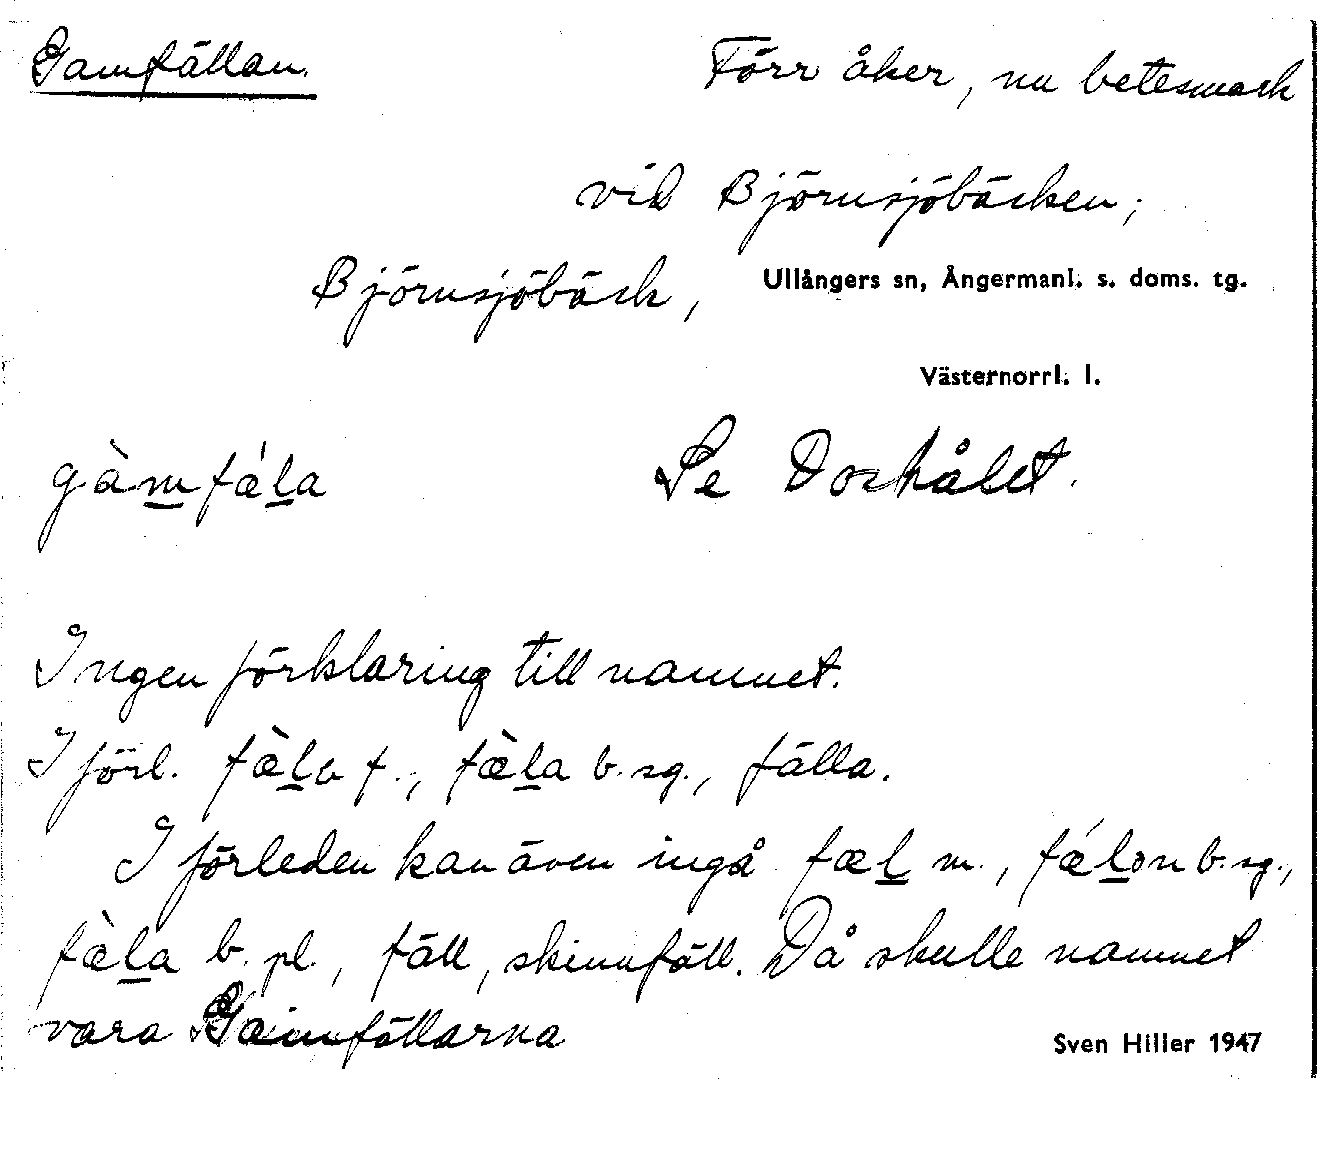 Gamfällan. Förr åker, nu betesmark
vid Björnsjöbäcken;
Björnsjöbäck, Ullångers sn, Ångermanl. s. doms. tg.
Västernorrl. l.
gàmfǽla Se Dorkålet.
Ingen förklaring till namnet.
I förl. fæ̀la f., fæ̀la b. sg., fälla.
I förleden kan även ingå fæl m., fǽlon b. sg.,
fæ̀la b. pl., fäll, skinnfäll. Då skulle namnet
vara Gamfällarna
Sven Hiller 1947